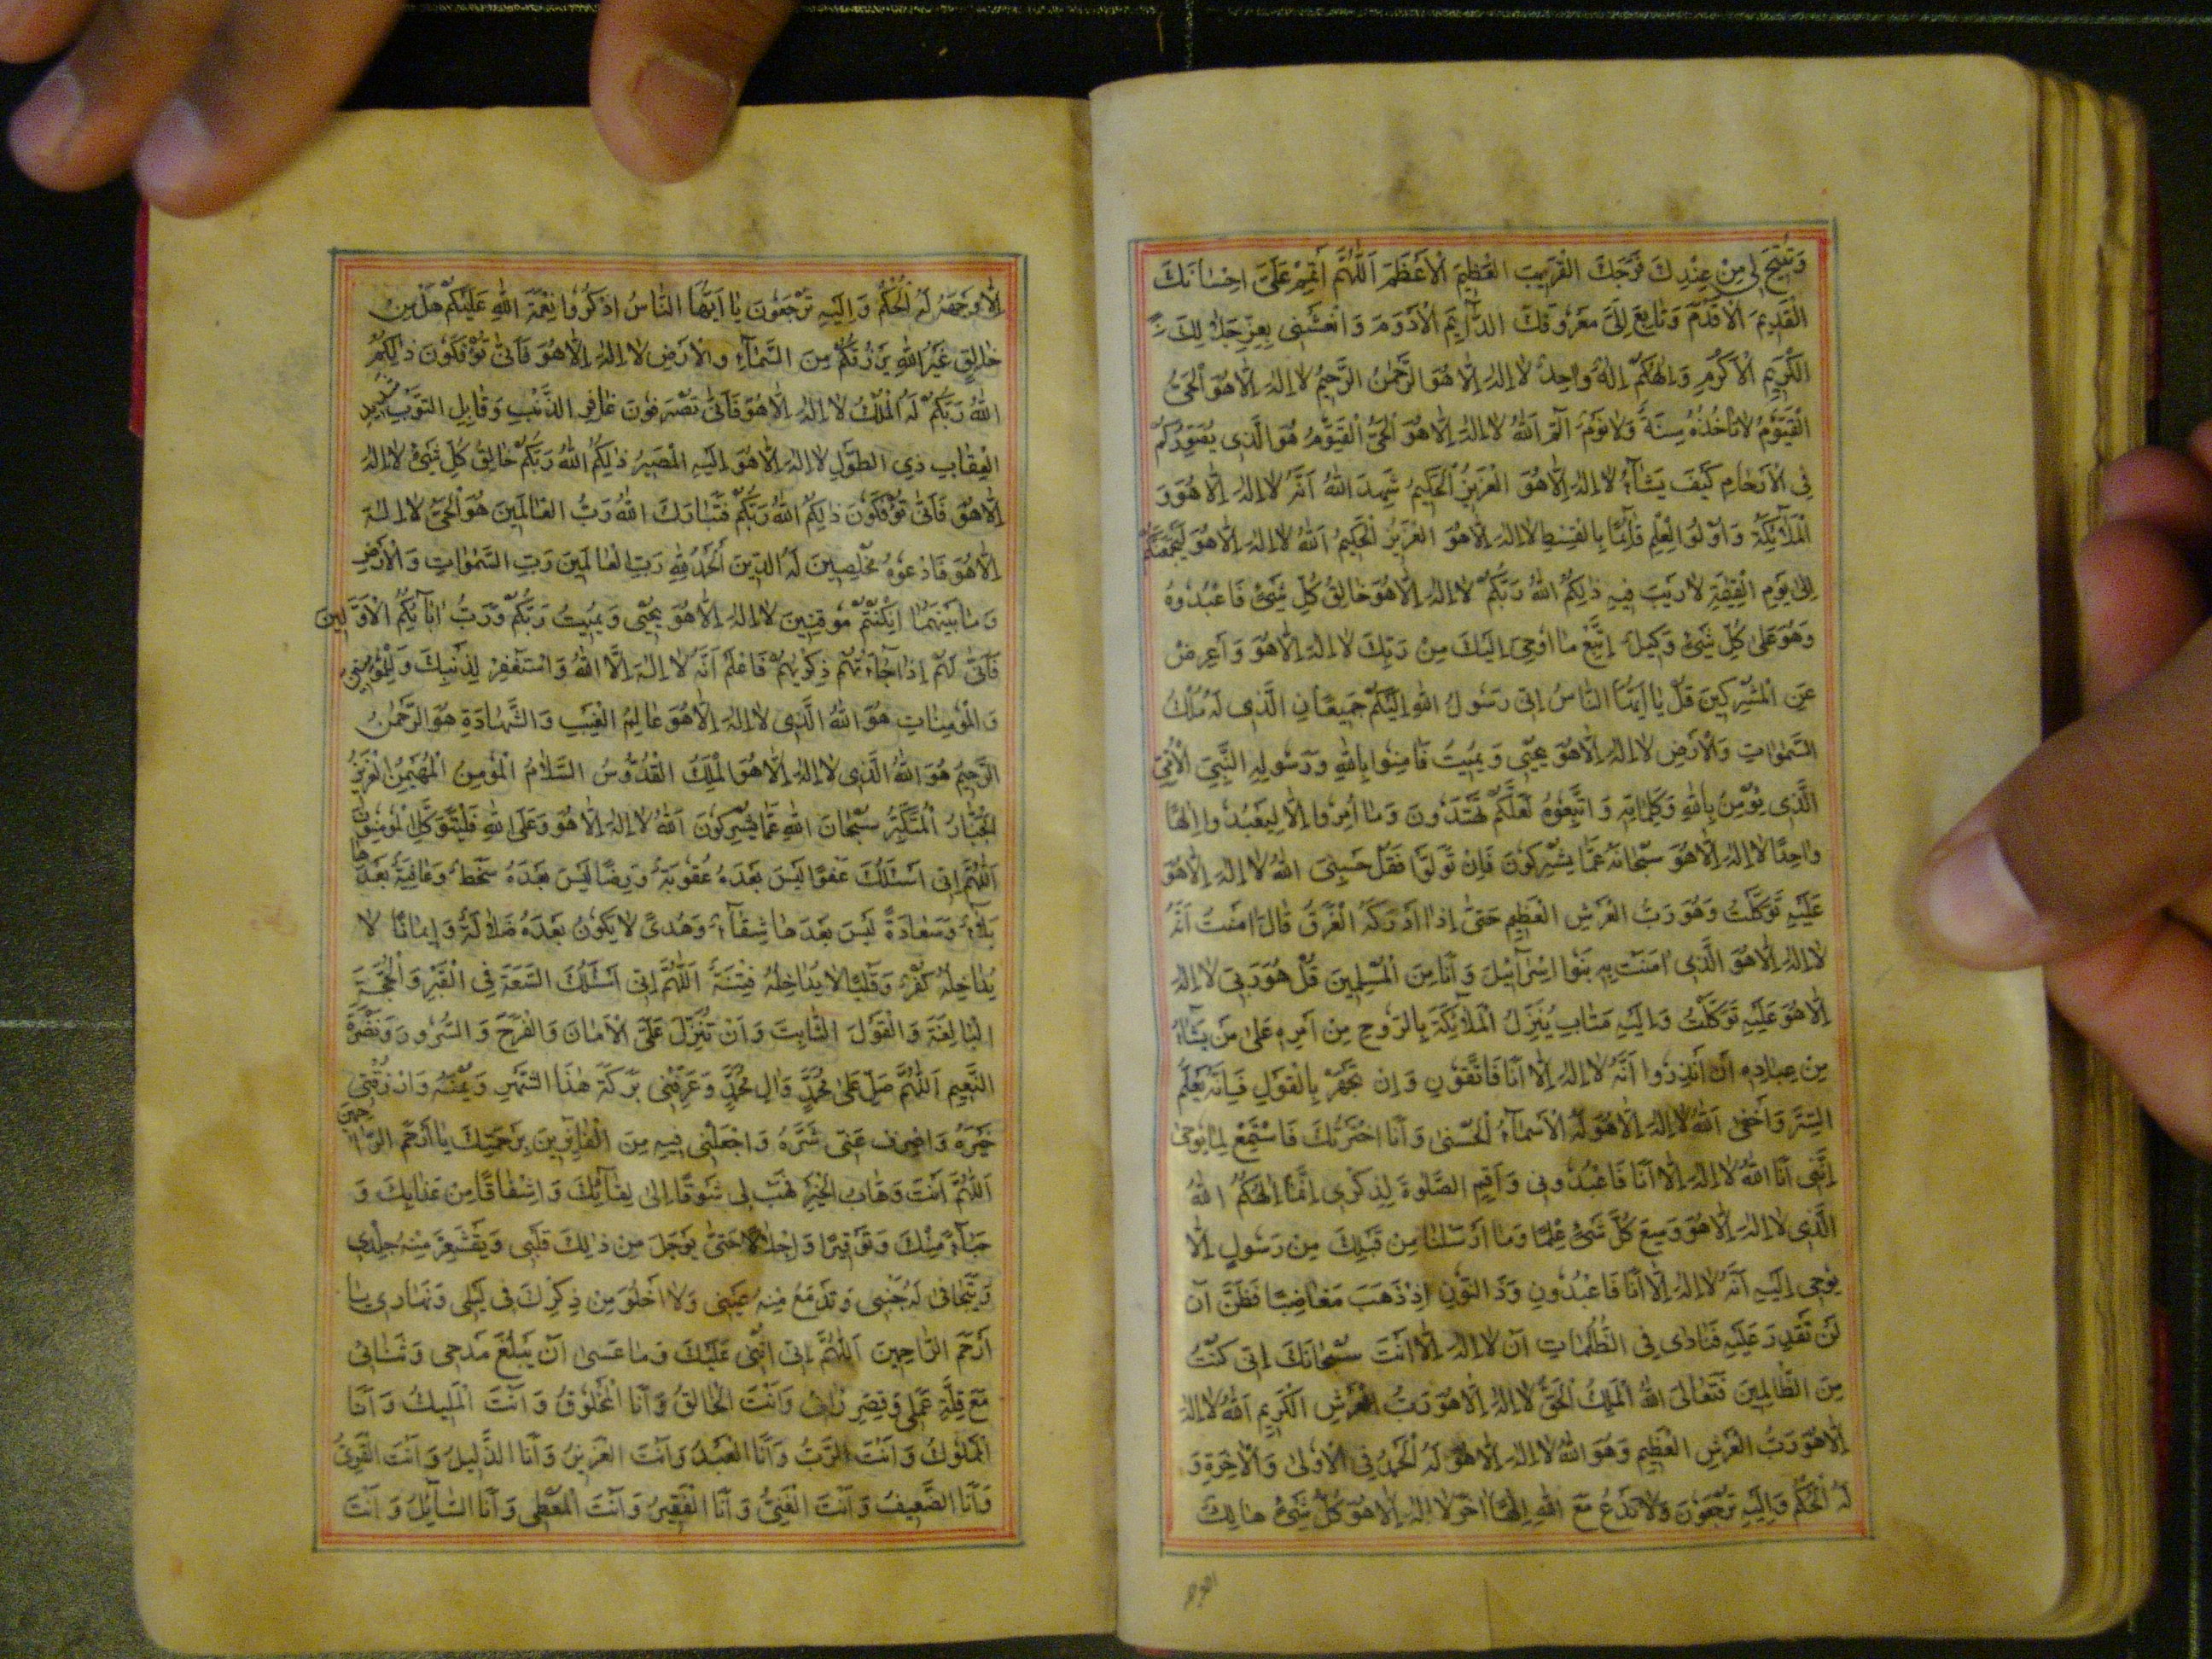 وَتُتِيحَ لِي مِنْ عِنْدِكَ فَرَجَكَ الْقَرِيبَ الْعَظِيمَ الْأَعْظَمَ اَللّٰهُمَّ أَتْمِمْ عَلَيَّ اِحْسٰانَكَ
الْقَدِيمَ الْأَقْدَمَ وَتٰابِعْ إِلَيَّ مَعْرُوفَكَ الدّٰآئِمَ الْأَدْوَمَ وَانْعَشْنِي بِعِزِّ جَلٰالِكَ
الْكَرِيمِ الْأَكْرَمِ وَإِلٰهُكُمْ إِلٰهٌ وٰاحِدٌ لٰا إِلٰهَ إِلّٰا هُوَ الرَّحْمٰنُ الرَّحِيمُ لٰا إِلٰهَ إِلّٰا هُوَ الْحَيُّ
الْقَيُّومُ لٰا تَأْخُذُهُ سِنَةٌ وَلٰا نَوْمٌ الٓمٓ اَللّٰهُ لٰا إِلٰهَ إِلّٰا هُوَ الْحَيُّ الْقَيُّومُ هُوَ الَّذِي يُصَوِّرُكُمْ
فِي الْأَرْحٰامِ كَيْفَ يَشٰآءُ لٰا إِلٰهَ إِلّٰا هُوَ الْعَزِيزُ الْحَكِيمُ شَهِدَ اللّٰهُ أَنَّهُ لٰا إِلٰهَ إِلّٰا هُوَ وَ
الْمَلٰٓائِكَةُ وَاُولُوا الْعِلْمِ قٰآئِمًا بِالْقِسْطِ لٰا إِلٰهَ إِلّٰا هُوَ الْعَزِيزُ الْحَكِيمُ اَللّٰهُ لٰا إِلٰهَ إِلّٰا هُوَ لَيَجْمَعَنَّكُمْ
إِلىٰ يَوْمِ الْقِيٰمَةِ لٰا رَيْبَ فِيهِ ذٰلِكُمُ اللّٰهُ رَبُّكُمْ لٰا إِلٰهَ إِلّٰا هُوَ خٰالِقُ كُلِّ شَيْءٍ فَاعْبُدُوهُ
وَهُوَ عَلىٰ كُلِّ شَيْءٍ وَكِيلٌ اِتَّبِعْ مٰا اُوحِيَ إِلَيْكَ مِنْ رَبِّكَ لٰا إِلٰهَ إِلّٰا هُوَ وَأَعْرِضْ
عَنِ الْمُشْرِكِينَ قُلْ يٰا أَيُّهَا النّٰاسُ إِنِّي رَسُولُ اللّٰهِ إِلَيْكُمْ جَمِيعًا نِ الَّذِي لَهُ مُلْكُ
السَّمٰوٰاتِ وَالْأَرْضِ لٰا إِلٰهَ إِلّٰا هُوَ يُحْيِي وَيُمِيتُ فَاٰمِنُوا بِاللّٰهِ وَرَسُولِهِ النَّبِيِّ الْاُمِّيِّ
الَّذِي يُؤْمِنُ بِاللّٰهِ وَكَلِمٰاتِهِ وَاتَّبِعُوهُ لَعَلَّكُمْ تَهْتَدُونَ وَمٰا اُمِرُوا إِلّٰا لِيَعْبُدُوا إِلٰهًا
وٰاحِدًا لٰا إِلٰهَ إِلّٰا هُوَ سُبْحٰانَهُ عَمّٰا يُشْرِكُونَ فَإِنْ تَوَلَّوْا فَقُلْ حَسْبِيَ اللّٰهُ لٰا إِلٰهَ إِلّٰا هُوَ
عَلَيْهِ تَوَكَّلْتُ وَهُوَ رَبُّ الْعَرْشِ الْعَظِيمِ حَتّىٰ إِذٰا أَدْرَكَهُ الْغَرَقُ قٰالَ اٰمَنْتُ أَنَّهُ
لٰا إِلٰهَ إِلّٰا هُوَ الَّذِي اٰمَنَتْ بِهِ بَنُوا إِسْرٰآئِيلَ وَأَنَا مِنَ الْمُسْلِمِينَ قُلْ هُوَ رَبِّي لٰا إِلٰهَ
إِلّٰا هُوَ عَلَيْهِ تَوَكَّلْتُ وَإِلَيْهِ مَتٰابِ يُنَزِّلُ الْمَلٰٓائِكَةَ بِالرُّوحِ مِنْ أَمْرِهِ عَلىٰ مَنْ يَشٰآءُ
مِنْ عِبٰادِهِ أَنْ أَنْذِرُوا أَنَّهُ لٰا إِلٰهَ إِلّٰا أَنَا فَاتَّقُونِ وَإِنْ تَجْهَرْ بِالْقَوْلِ فَإِنَّهُ يَعْلَمُ
السِّرَّ وَأَخْفىٰ اَللّٰهُ لٰا إِلٰهَ إِلّٰا هُوَ لَهُ الْأَسْمٰآءُ الْحُسْنىٰ وَأَنَا اخْتَرْتُكَ فَاسْتَمِعْ لِمٰا يُوحىٰ
إِنَّنِي أَنَا اللّٰهُ لٰا إِلٰهَ إِلّٰا أَنَا فَاعْبُدُونِي وَأَقِمِ الصَّلٰوةَ لِذِكْرِي إِنَّمٰا إِلٰهُكُمُ اللّٰهُ
الَّذِي لٰا إِلٰهَ إِلّٰا هُوَ وَسِعَ كُلَّ شَيْءٍ عِلْمًا وَمٰا أَرْسَلْنٰا مِنْ قَبْلِكَ مِنْ رَسُولٍ إِلّٰا
يُوحىٰ إِلَيْهِ أَنَّهُ لٰا إِلٰهَ إِلّٰا أَنَا فَاعْبُدُونِ وَذَا النُّونِ إِذْ ذَهَبَ مُغٰاضِبًا فَظَنَّ أَنْ
لَنْ نَقْدِرَ عَلَيْهِ فَنٰادىٰ فِي الظُّلُمٰاتِ أَنْ لٰا إِلٰهَ إِلّٰا أَنْتَ سُبْحٰانَكَ إِنِّي كُنْتُ
مِنَ الظّٰالِمِينَ فَتَعٰالَى اللّٰهُ الْمَلِكُ الْحَقُّ لٰا إِلٰهَ إِلّٰا هُوَ رَبُّ الْعَرْشِ الْكَرِيمِ اَللّٰهُ لٰا إِلٰهَ
إِلّٰا هُوَ رَبُّ الْعَرْشِ الْعَظِيمِ وَهُوَ اللّٰهُ لٰا إِلٰهَ إِلّٰا هُوَ لَهُ الْحَمْدُ فِي الْاُولىٰ وَالْاٰخِرَةِ وَ
لَهُ الْحُكْمُ وَإِلَيْهِ تُرْجَعُونَ وَلٰا تَدْعُ مَعَ اللّٰهِ إِلٰهًا اٰخَرَ لٰا إِلٰهَ إِلّٰا هُوَ كُلُّ شَيْءٍ هٰالِكٌ
إِلّٰا وَجْهَهُ لَهُ الْحُكْمُ وَإِلَيْهِ تُرْجَعُونَ يٰا أَيُّهَا النّٰاسُ اذْكُرُوا نِعْمَةَ اللّٰهِ عَلَيْكُمْ هَلْ مِنْ
خٰالِقٍ غَيْرُ اللّٰهِ يَرْزُقُكُمْ مِنَ السَّمٰآءِ وَالْأَرْضِ لٰا إِلٰهَ إِلّٰا هُوَ فَأَنّىٰ تُؤْفَكُونَ ذٰلِكُمُ
اللّٰهُ رَبُّكُمْ لَهُ الْمُلْكُ لٰا إِلٰهَ إِلّٰا هُوَ فَأَنّىٰ تُصْرَفُونَ غٰافِرِ الذَّنْبِ وَقٰابِلِ التَّوْبِ شَدِيدِ
الْعِقٰابِ ذِي الطَّوْلِ لٰا إِلٰهَ إِلّٰا هُوَ إِلَيْهِ الْمَصِيرُ ذٰلِكُمُ اللّٰهُ رَبُّكُمْ خٰالِقُ كُلِّ شَيْءٍ لٰا إِلٰهَ
إِلّٰا هُوَ فَأَنّىٰ تُؤْفَكُونَ ذٰلِكُمُ اللّٰهُ رَبُّكُمْ فَتَبٰارَكَ اللّٰهُ رَبُّ الْعٰالَمِينَ هُوَ الْحَيُّ لٰا إِلٰهَ
إِلّٰا هُوَ فَادْعُوهُ مُخْلِصِينَ لَهُ الدِّينَ اَلْحَمْدُ لِلّٰهِ رَبِّ الْعٰالَمِينَ رَبِّ السَّمٰوٰاتِ وَالْأَرْضِ
وَمٰا بَيْنَهُمٰا إِنْ كُنْتُمْ مُوقِنِينَ لٰا إِلٰهَ إِلّٰا هُوَ يُحْيِي وَيُمِيتُ رَبُّكُمْ وَرَبُّ اٰبٰآئِكُمُ الْأَوَّلِينَ
فَأَنّىٰ لَهُمْ إِذٰا جٰآءَتْهُمْ ذِكْرٰيهُمْ فَاعْلَمْ أَنَّهُ لٰا إِلٰهَ إِلَّا اللّٰهُ وَاسْتَغْفِرْ لِذَنْبِكَ وَلِلْمُؤْمِنِينَ
وَالْمُؤْمِنٰاتِ هُوَ اللّٰهُ الَّذِي لٰا إِلٰهَ إِلّٰا هُوَ عٰالِمُ الْغَيْبِ وَالشَّهٰادَةِ هُوَ الرَّحْمٰنُ
الرَّحِيمُ هُوَ اللّٰهُ الَّذِي لٰا إِلٰهَ إِلّٰا هُوَ الْمَلِكُ الْقُدُّوسُ السَّلٰامُ الْمُؤْمِنُ الْمُهَيْمِنُ الْعَزِيزُ
الْجَبّٰارُ الْمُتَكَبِّرُ سُبْحٰانَ اللّٰهِ عَمّٰا يُشْرِكُونَ اَللّٰهُ لٰا إِلٰهَ إِلّٰا هُوَ وَعَلَى اللّٰهِ فَلْيَتَوَكَّلِ الْمُؤْمِنُونَ
اَللّٰهُمَّ إِنِّي أَسْئَلُكَ عَفْوًا لَيْسَ بَعْدَهُ عُقُوبَةٌ وَرِضًا لَيْسَ بَعْدَهُ سَخَطٌ وَعٰافِيَةً بَعْدَهٰا
بَلٰآءٌ وَسَعٰادَةً لَيْسَ بَعْدَهٰا شِقٰآءٌ وَهُدىً لٰا يَكُونُ بَعْدَهُ ضَلٰالَةٌ وَإِيمٰانًا لٰا
يُدٰاخِلُهُ كُفْرٌ وَقَلْبًا لٰا يُدٰاخِلُهُ فِتْنَةٌ اَللّٰهُمَّ إِنِّي أَسْئَلُكَ السَّعَةَ فِي الْقَبْرِ وَالْحُجَّةَ
الْبٰالِغَةَ وَالْقَوْلَ الثّٰابِتَ وَأَنْ تُنْزِلَ عَلَيَّ الْأَمٰانَ وَالْفَرَحَ وَالسُّرُورَ وَنَضْرَةَ
النَّعِيمِ اَللّٰهُمَّ صَلِّ عَلىٰ مُحَمَّدٍ وَاٰلِ مُحَمَّدٍ وَعَرِّفْنِي بَرَكَةَ هٰذَا الشَّهْرِ وَيُمْنَهُ وَارْزُقْنِي
خَيْرَهُ وَاصْرِفْ عَنِّي شَرَّهُ وَاجْعَلْنِي فِيهِ مِنَ الْفٰائِزِينَ بِرَحْمَتِكَ يٰا أَرْحَمَ الرّٰاحِمِينَ
اَللّٰهُمَّ أَنْتَ وَهّٰابُ الْخَيْرِ هَبْ لِي شَوْقًا إِلىٰ لِقٰآئِكَ وَإِشْفٰاقًا مِنْ عَذٰابِكَ وَ
حَيٰآءً مِنْكَ وَتَوْقِيرًا وَإِجْلٰالًا حَتّىٰ يَوْجَلَ مِنْ ذٰلِكَ قَلْبِي وَيَقْشَعِرَّ مِنْهُ جِلْدِي
وَيَتَجٰافىٰ لَهُ جَنْبِي وَتَدْمَعَ مِنْهُ عَيْنِي وَلٰا أَخْلُوَ مِنْ ذِكْرِكَ فِي لَيْلِي وَنَهٰارِي يٰا
أَرْحَمَ الرّٰاحِمِينَ اَللّٰهُمَّ إِنِّي اُثْنِي عَلَيْكَ وَمٰا عَسىٰ أَنْ يَبْلُغَ مَدْحِي وَثَنٰائِي
مَعَ قِلَّةِ عَمَلِي وَقِصَرِ رَأْيِي وَأَنْتَ الْخٰالِقُ وَأَنَا الْمَخْلُوقُ وَأَنْتَ الْمَلِيكُ وَأَنَا
الْمَمْلُوكُ وَأَنْتَ الرَّبُّ وَأَنَا الْعَبْدُ وَأَنْتَ الْعَزِيزُ وَأَنَا الذَّلِيلُ وَأَنْتَ الْقَوِيُّ
وَأَنَا الضَّعِيفُ وَأَنْتَ الْغَنِيُّ وَأَنَا الْفَقِيرُ وَأَنْتَ الْمُعْطِي وَأَنَا السّٰآئِلُ وَأَنْتَ